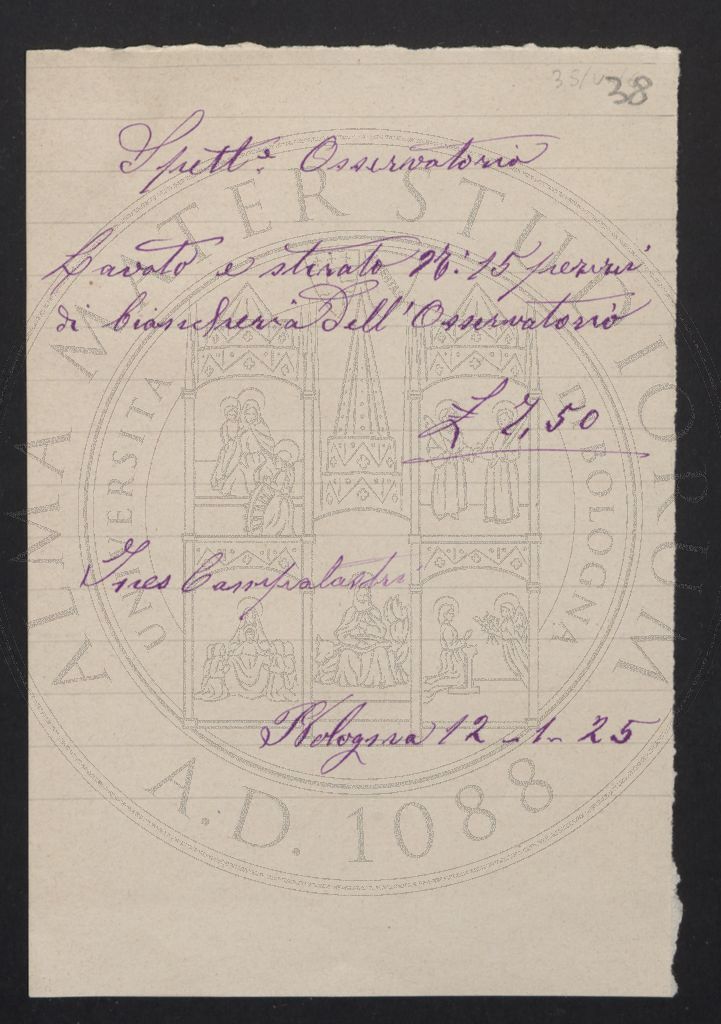 38
Spett.e Osservatorio
Lavato e stirato N: 15 pezzi
di biancheria dell'Osservatorio
£ 7,50
Ines Campalastri
Bologna 12-1-25
ALMA MATER STUDIORUM
UNIVERSITÀ DI BOLOGNA
A.D. 1088